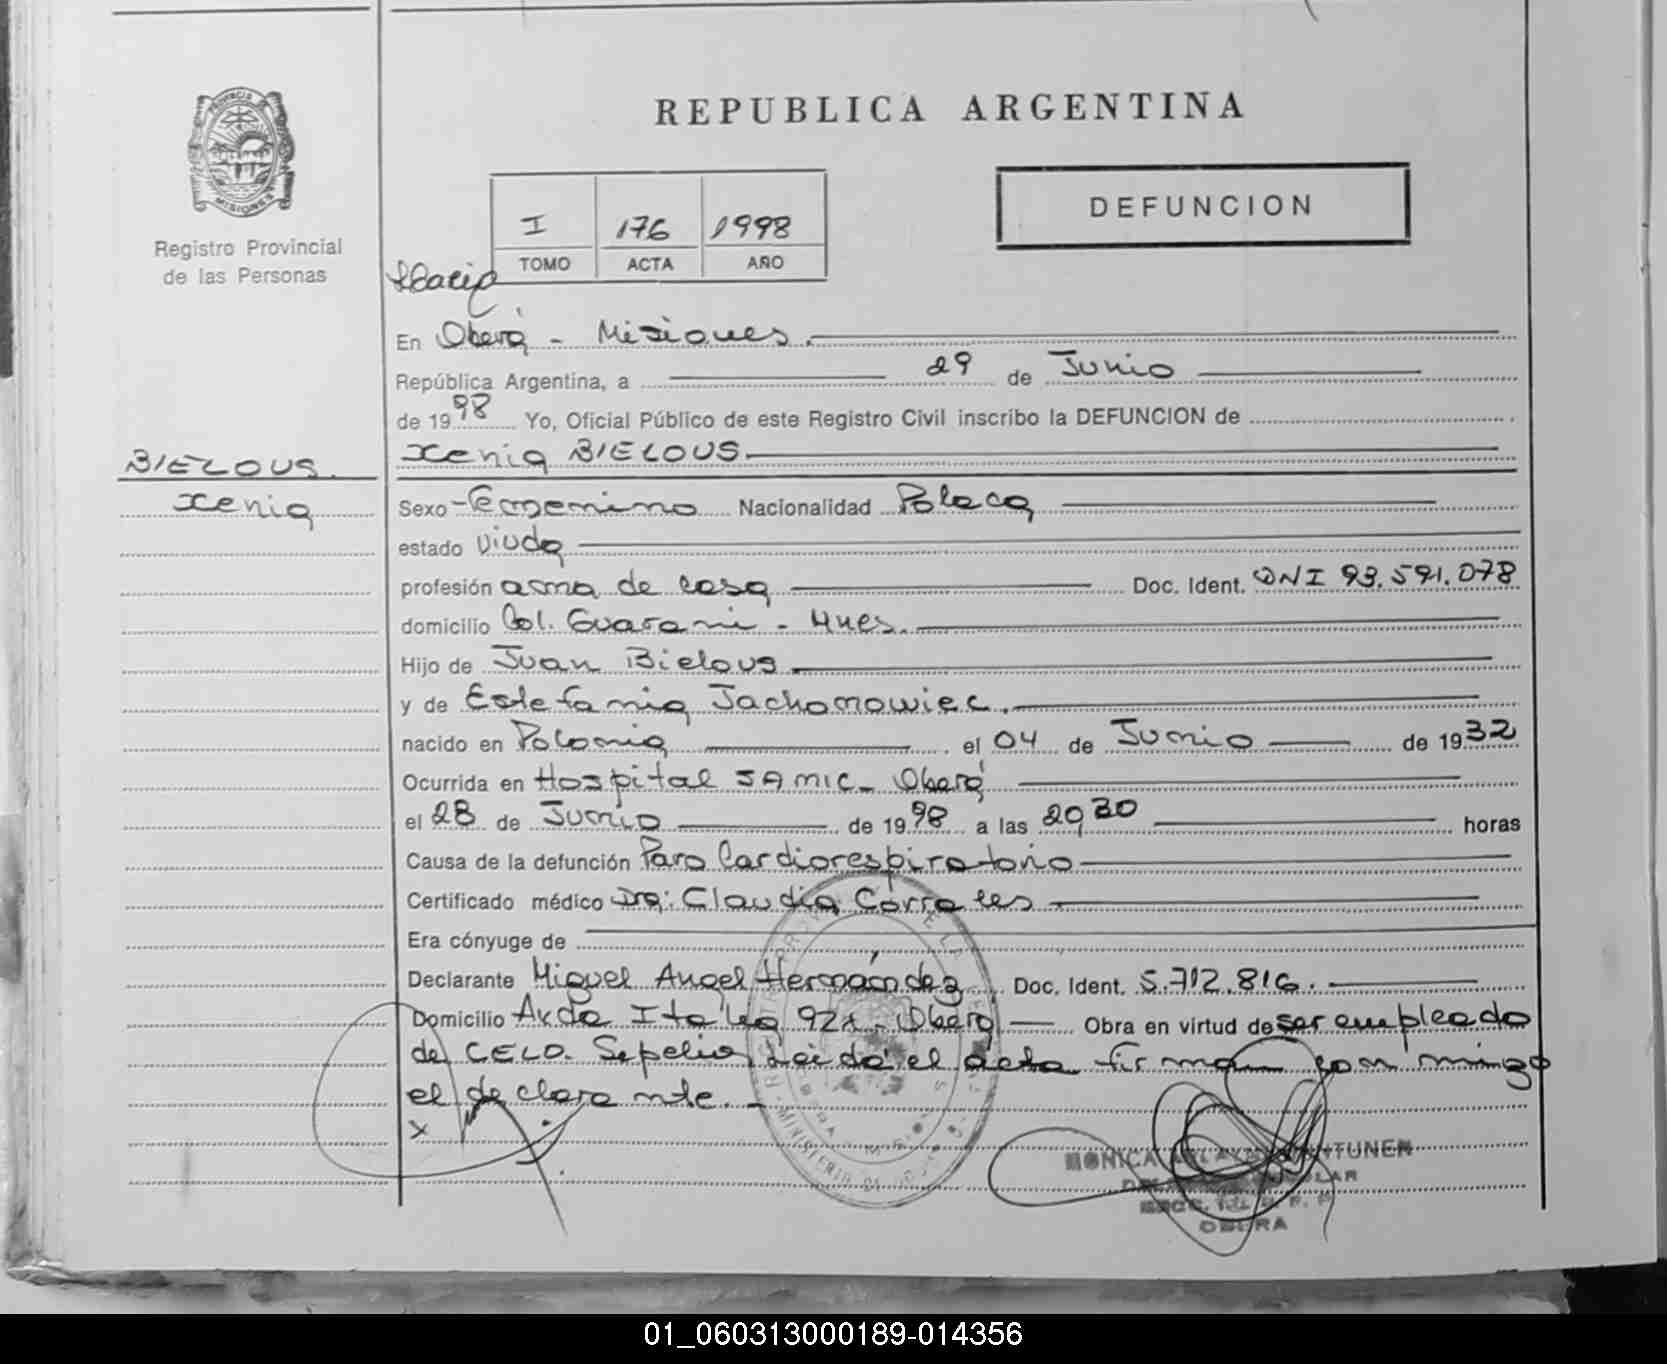 REPUBLICA ARGENTINA
PROVINCIA DE
MISIONES
Registro Provincial
de las Personas
DEFUNCION
I 176 1998
TOMO ACTA AÑO
En Oberá - Misiones.
República Argentina, a 29 de Junio
de 1998 Yo, Oficial Público de este Registro Civil inscribo la DEFUNCION de
Xenia BIELOUS.
BIELOUS.
Xenia
Sexo Femenino Nacionalidad Polaca
estado viuda
profesión ama de casa Doc. Ident. DNI 93.591.078
domicilio Col. Guarani - Mnes.
Hijo de Juan Bielous
y de Estefania Jachomowiec.
nacido en Polonia el 04 de Junio de 1932
Ocurrida en Hospital SAMIC - Oberá
el 28 de Junio de 1998 a las 2030 horas
Causa de la defunción Paro Cardiorespiratorio
Certificado médico Dra: Claudia Corrales
Era cónyuge de
Declarante Miguel Angel Hernández Doc. Ident. 5.712.816.
Domicilio Avda Italia 921 - Oberá Obra en virtud de ser empleado
de CELO. Sepelio Leida el acta firma conmigo
el declarante. -
x
MONICA
OBERA
01_060313000189-014356